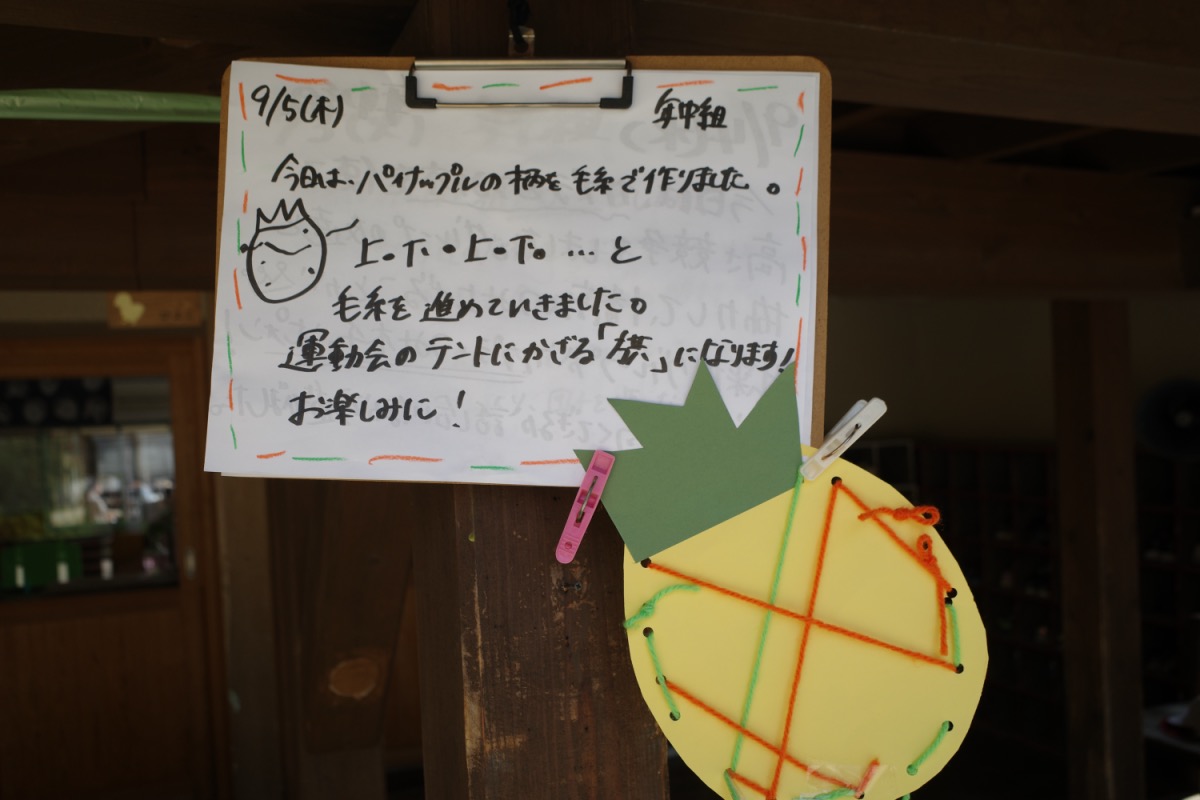 9/5(木) 年中組
今日は、パイナップルの柄を毛糸で作りました。
上。下。上。下。…と
毛糸を進めていきました。
運動会のテントにかざる「旗」になります!
お楽しみに!